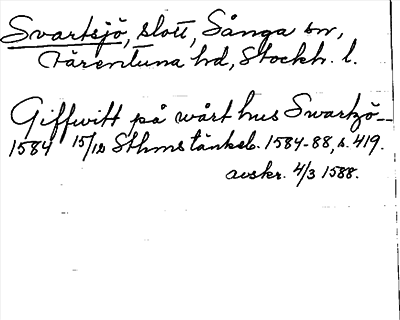 Svartsjö, slott, Sånga sn,
Färentuna hd, Stockh. l.
Giffwitt på wårt hus Swartzö
1584 15/12 Sthms tänkeb. 1584-88, s. 419.
avskr. 4/3 1588.